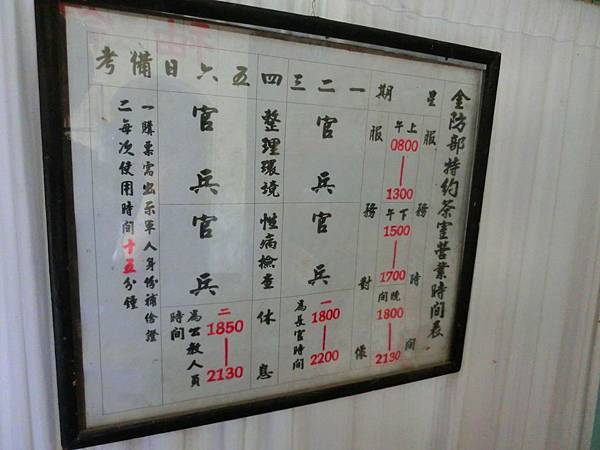 金防部特約茶室營業時間表
星期一二三四五六日備考
服務時間
服務對像
上午
0800
1300
下午
1500
1700
晚間
1800
2130
官兵
官兵
一
1800
2200
為長官時間
整理環境
性病檢查
休息
官兵
官兵
二
1850
2130
為公教人員
時間
一購票需出示軍人身份補給證
二每次使用時間十五分鐘